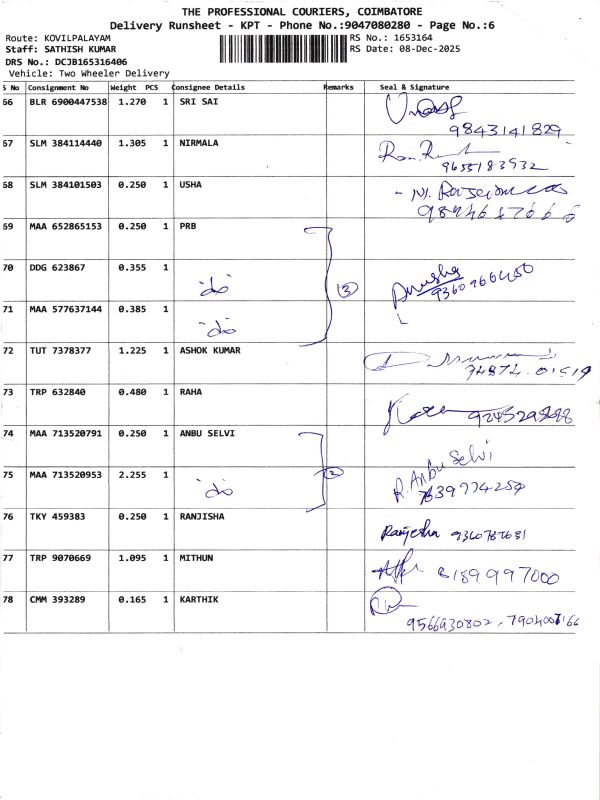 THE PROFESSIONAL COURIERS, COIMBATORE
Delivery Runsheet - KPT - Phone No.:9047080280 - Page No.:6
Route: KOVILPALAYAM
RS No.: 1653164
Staff: SATHISH KUMAR
RS Date: 08-Dec-2025
DRS No.: DCJB165316406
Vehicle: Two Wheeler Delivery
S No Consignment No Weight PCS Consignee Details Remarks Seal & Signature
66 BLR 6900447538 1.270 1 SRI SAI
9843141829
67 SLM 384114440 1.305 1 NIRMALA
9655183932
68 SLM 384101503 0.250 1 USHA
69 MAA 652865153 0.250 1 PRB
70 DDG 623867 0.355 1 do (3) Anusha
9360966450
71 MAA 577637144 0.385 1 do
72 TUT 7378377 1.225 1 ASHOK KUMAR
74874 01519
73 TRP 632840 0.480 1 RAHA
74 MAA 713520791 0.250 1 ANBU SELVI
R. Anbu Selvi
75 MAA 713520953 2.255 1 do (2)
76 TKY 459383 0.250 1 RANJISHA
77 TRP 9070669 1.095 1 MITHUN
8189997000
78 CMM 393289 0.165 1 KARTHIK
9566930802, 7904007166